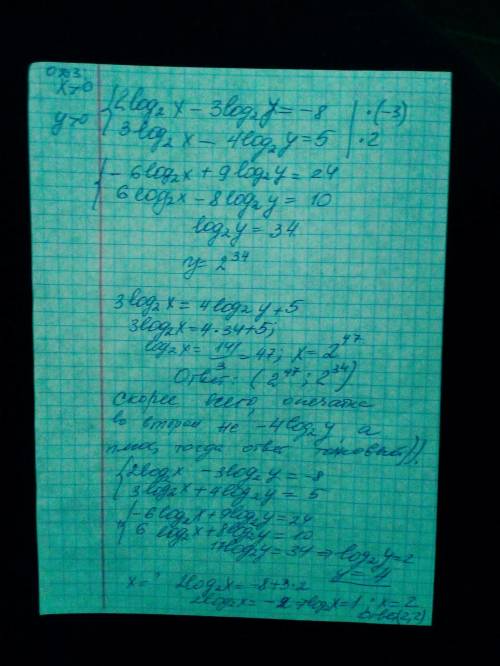 ОДЗ.
x>0
y>0
{ 2log₂x - 3log₂y = -8 | ·(-3)
3log₂x - 4log₂y = 5 | ·2
{ -6log₂x + 9log₂y = 24
6log₂x - 8log₂y = 10
log₂y = 34
y = 2³⁴
3log₂x = 4log₂y + 5
3log₂x = 4·34 + 5;
log₂x = 141/3 = 47; x = 2⁴⁷
Ответ: (2⁴⁷; 2³⁴)
скорее всего, опечатка
во втором не -4log₂y, а
плюс, тогда ответ)).
{ 2log₂x - 3log₂y = -8
3log₂x + 4log₂y = 5
{ -6log₂x + 9log₂y = 24
6log₂x + 8log₂y = 10
17log₂y = 34 ⇒ log₂y = 2
y = 4
x = ? 2log₂x = -8 + 3·2
2log₂x = -2 ⇒ log₂x = 1; x = 2